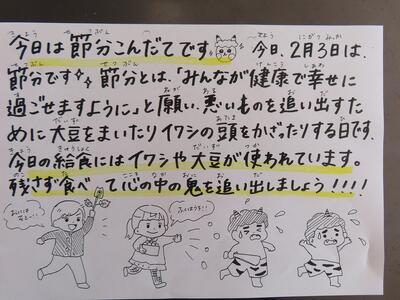 今日は節分こんだてです 今日、2月3日は、
節分です✧ 節分とは、「みんなが健康で幸せに
過ごせますように」と願い、悪いものを追い出すた
めに大豆をまいたりイワシの頭をかざったりする日です。
今日の給食にはイワシや大豆が使われています。
残さず食べて心の中の鬼を追い出しましょう!!!!